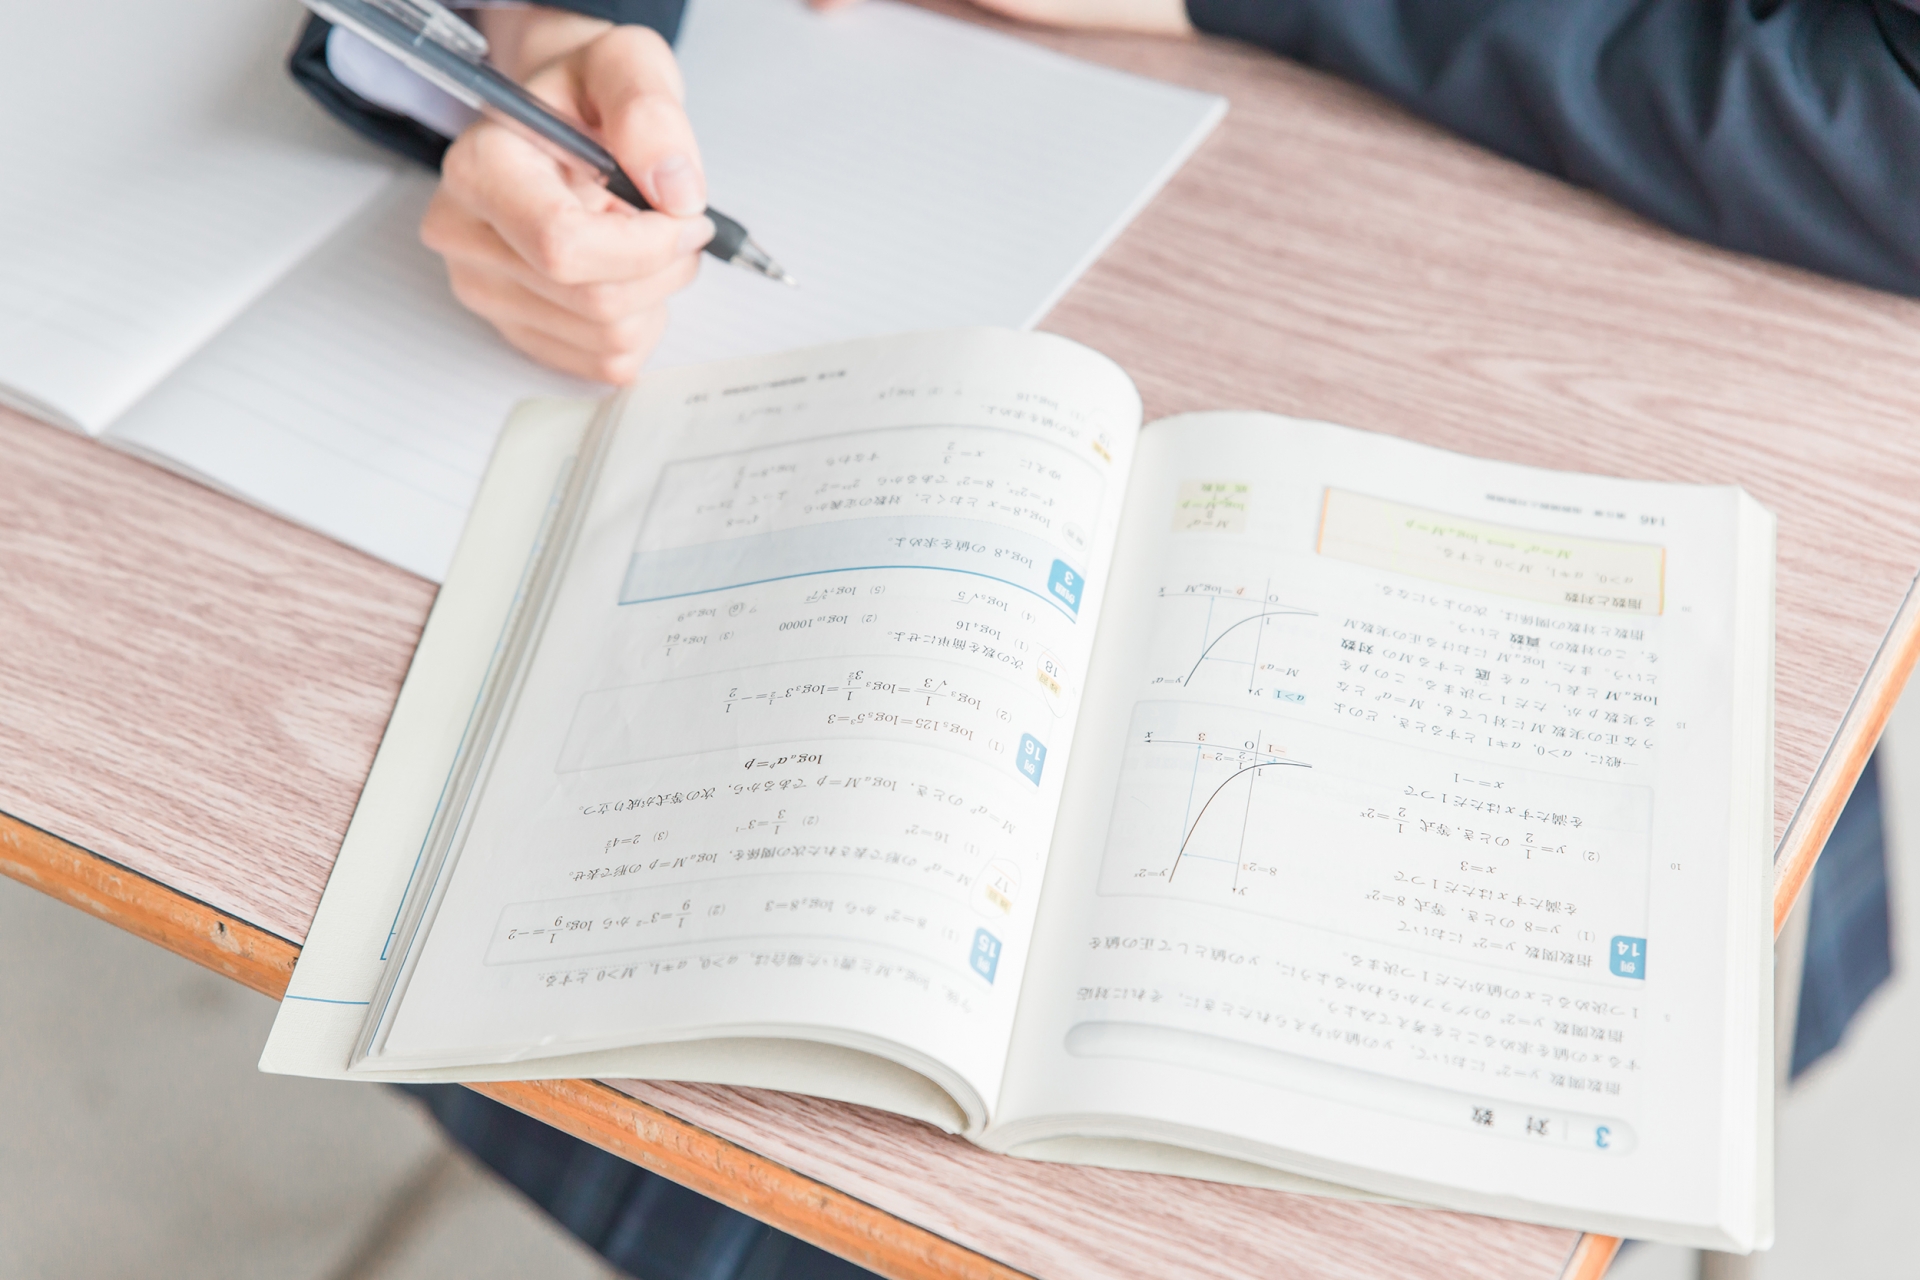 3 対数
指数関数 y=2ˣ において, yの値が与えられたときに, それに対応
するxの値を求めることを考えてみよう。
指数関数 y=2ˣ のグラフからわかるように, yの値として正の値を
1つ決めるとxの値がただ1つ決まる。
例14
指数関数 y=2ˣ において
(1) y=8 のとき, 等式 8=2ˣ
を満たすxはただ1つで
x=3
(2) y=1/2 のとき, 等式 1/2=2ˣ
を満たすxはただ1つで
x=−1
y
y=2ˣ
8=2³
1
1/2=2⁻¹
−1
O
3
x
一般に, a>0, a≠1 とするとき, どのよ
うな正の実数Mに対しても, M=aᵖ とな
る実数pが, ただ1つ決まる。このpを
logₐM と表し, aを 底 とするMの 対数
という。また, logₐM における正の実数M
を, この対数の 真数 という。
指数と対数の関係は, 次のようになる。
a>1
y
y=aˣ
M=aᵖ
1
O
p=logₐM
x
指数と対数
a>0, a≠1, M>0 とする。
M=aᵖ ⇔ logₐM=p
M=aᵖ
logₐM=p
146
今後, logₐM と書いた場合は, a>0, a≠1, M>0 とする。
例15
(1) 8=2³ から log₂8=3
(2) 1/9=3⁻² から log₃1/9=−2
練習17
M=aᵖ の形で表された次の関係を, logₐM=p の形で表せ。
(1) 16=2⁴
(2) 1/3=3⁻¹
(3) 2=4^(1/2)
M=aᵖ のとき, logₐM=p であるから, 次の等式が成り立つ。
logₐaᵖ=p
例16
(1) log₅125=log₅5³=3
(2) log₃1/√3=log₃1/3^(1/2)=log₃3^(−1/2)=−1/2
練習18
次の数を簡単にせよ。
(1) log₂16
(2) log₁₀10000
(4) log₅√5
例題3
log₄8 の値を求めよ。
log₄8=x とおくと, 対数の定義から 4ˣ=8
4ˣ=2²ˣ, 8=2³ であるから 2²ˣ=2³
ゆえに x=3/2 すなわち
次の値を求めよ。